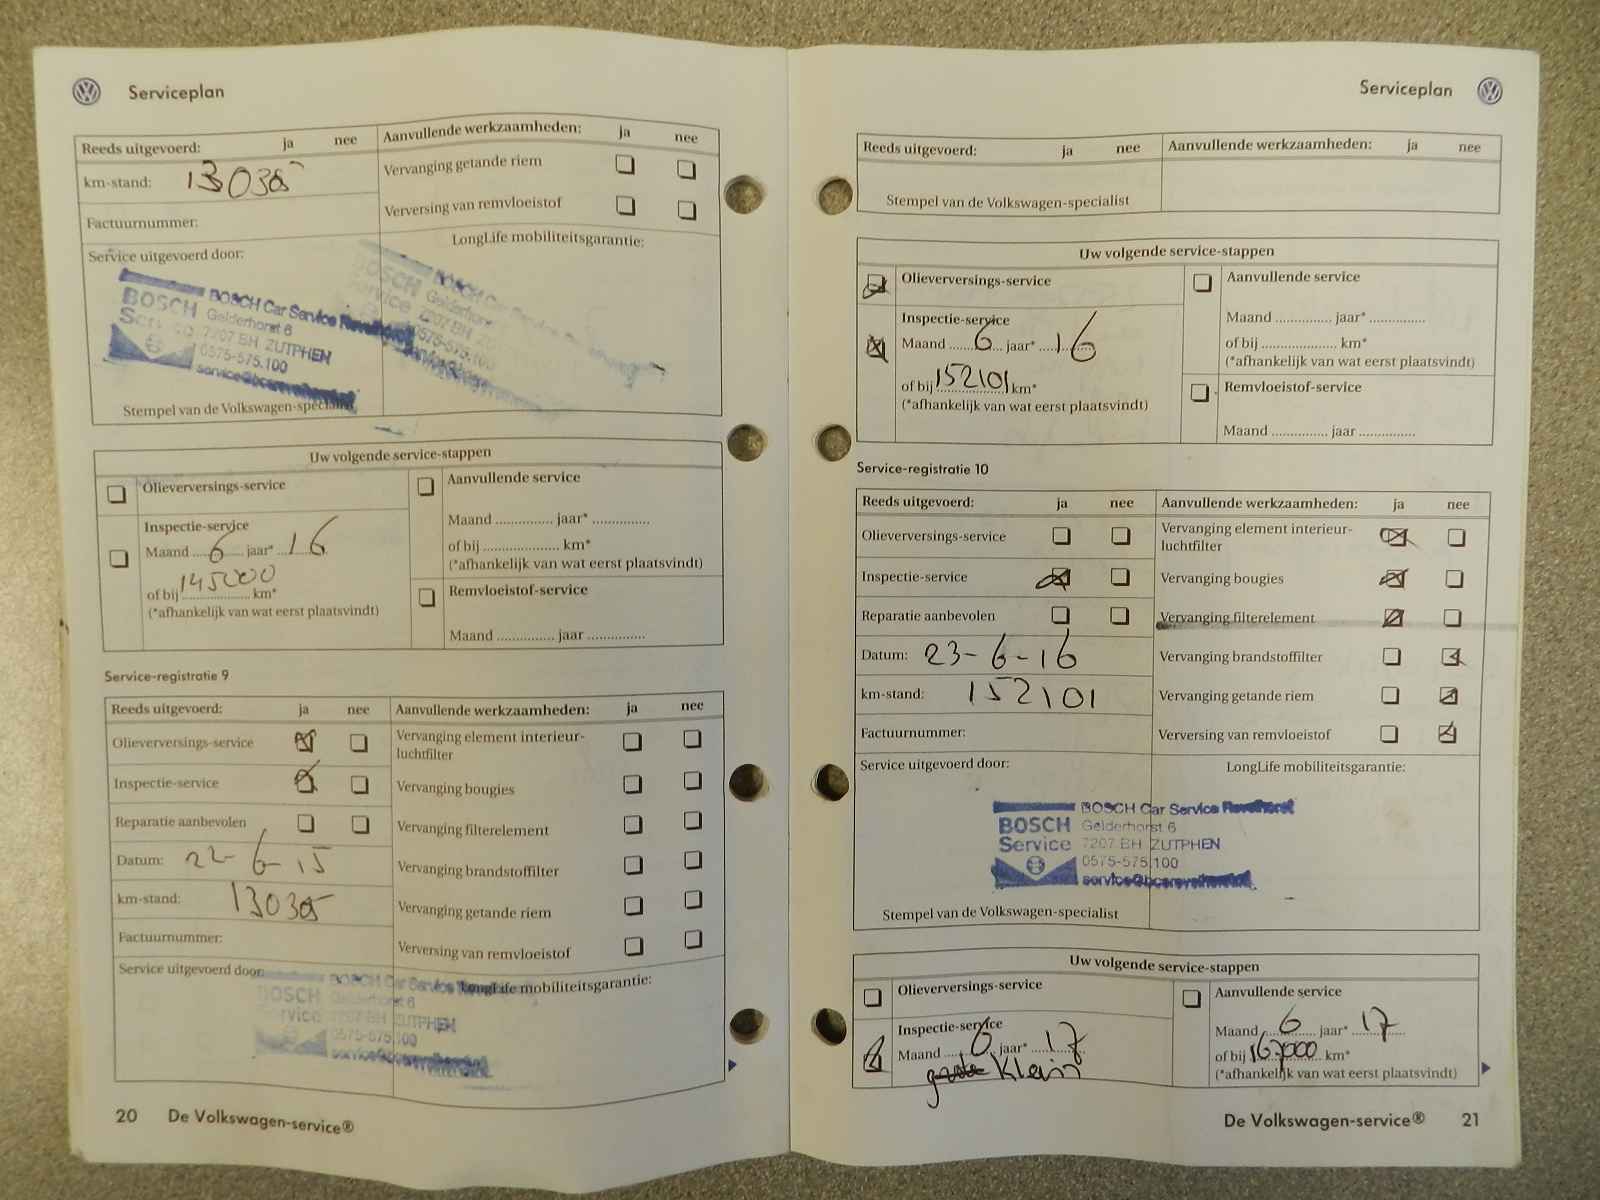 Serviceplan
Reeds uitgevoerd: ja nee
km-stand: 13035
Factuurnummer:
Service uitgevoerd door:
BOSCH Service
BOSCH Car Service Revelhorst
Gelderhorst 6
7207 BH ZUTPHEN
0575-575.100
Stempel van de Volkswagen-specialist
Aanvullende werkzaamheden: ja nee
Vervanging getande riem
Verversing van remvloeistof
LongLife mobiliteitsgarantie:
BOSCH Service
BOSCH Car Service
Gelderhorst
7207 BH
0575-575.100
Uw volgende service-stappen
Olieverversings-service
Inspectie-service
Maand 6 jaar* 16
of bij 145000 km*
(*afhankelijk van wat eerst plaatsvindt)
Aanvullende service
Maand ............... jaar* ...............
of bij .................... km*
(*afhankelijk van wat eerst plaatsvindt)
Remvloeistof-service
Maand ............... jaar ...............
Service-registratie 9
Reeds uitgevoerd: ja nee
Olieverversings-service
Inspectie-service
Reparatie aanbevolen
Datum: 22-6-15
km-stand: 13035
Factuurnummer:
Service uitgevoerd door:
Aanvullende werkzaamheden: ja nee
Vervanging element interieur-
luchtfilter
Vervanging bougies
Vervanging filterelement
Vervanging brandstoffilter
Vervanging getande riem
Verversing van remvloeistof
LongLife mobiliteitsgarantie:
BOSCH Service
BOSCH Car Service
Gelderhorst 6
7207 BH ZUTPHEN
0575-575.100
20 De Volkswagen-service®
Serviceplan
Reeds uitgevoerd: ja nee
Stempel van de Volkswagen-specialist
Aanvullende werkzaamheden: ja nee
Uw volgende service-stappen
Olieverversings-service
Inspectie-service
Maand 6 jaar* 16
of bij 152101 km*
(*afhankelijk van wat eerst plaatsvindt)
Aanvullende service
Maand ............... jaar* ...............
of bij .................... km*
(*afhankelijk van wat eerst plaatsvindt)
Remvloeistof-service
Maand ............... jaar ...............
Service-registratie 10
Reeds uitgevoerd: ja nee
Olieverversings-service
Inspectie-service
Reparatie aanbevolen
Datum: 23-6-16
km-stand: 152101
Factuurnummer:
Service uitgevoerd door:
Aanvullende werkzaamheden: ja nee
Vervanging element interieur-
luchtfilter
Vervanging bougies
Vervanging filterelement
Vervanging brandstoffilter
Vervanging getande riem
Verversing van remvloeistof
LongLife mobiliteitsgarantie:
BOSCH Service
BOSCH Car Service Revelhorst
Gelderhorst 6
7207 BH ZUTPHEN
0575-575.100
service@bcsrevelhorst.nl
Stempel van de Volkswagen-specialist
Uw volgende service-stappen
Olieverversings-service
Inspectie-service
Maand 6 jaar* 17
Klein
Aanvullende service
Maand 6 jaar* 17
of bij 167000 km*
(*afhankelijk van wat eerst plaatsvindt)
De Volkswagen-service® 21